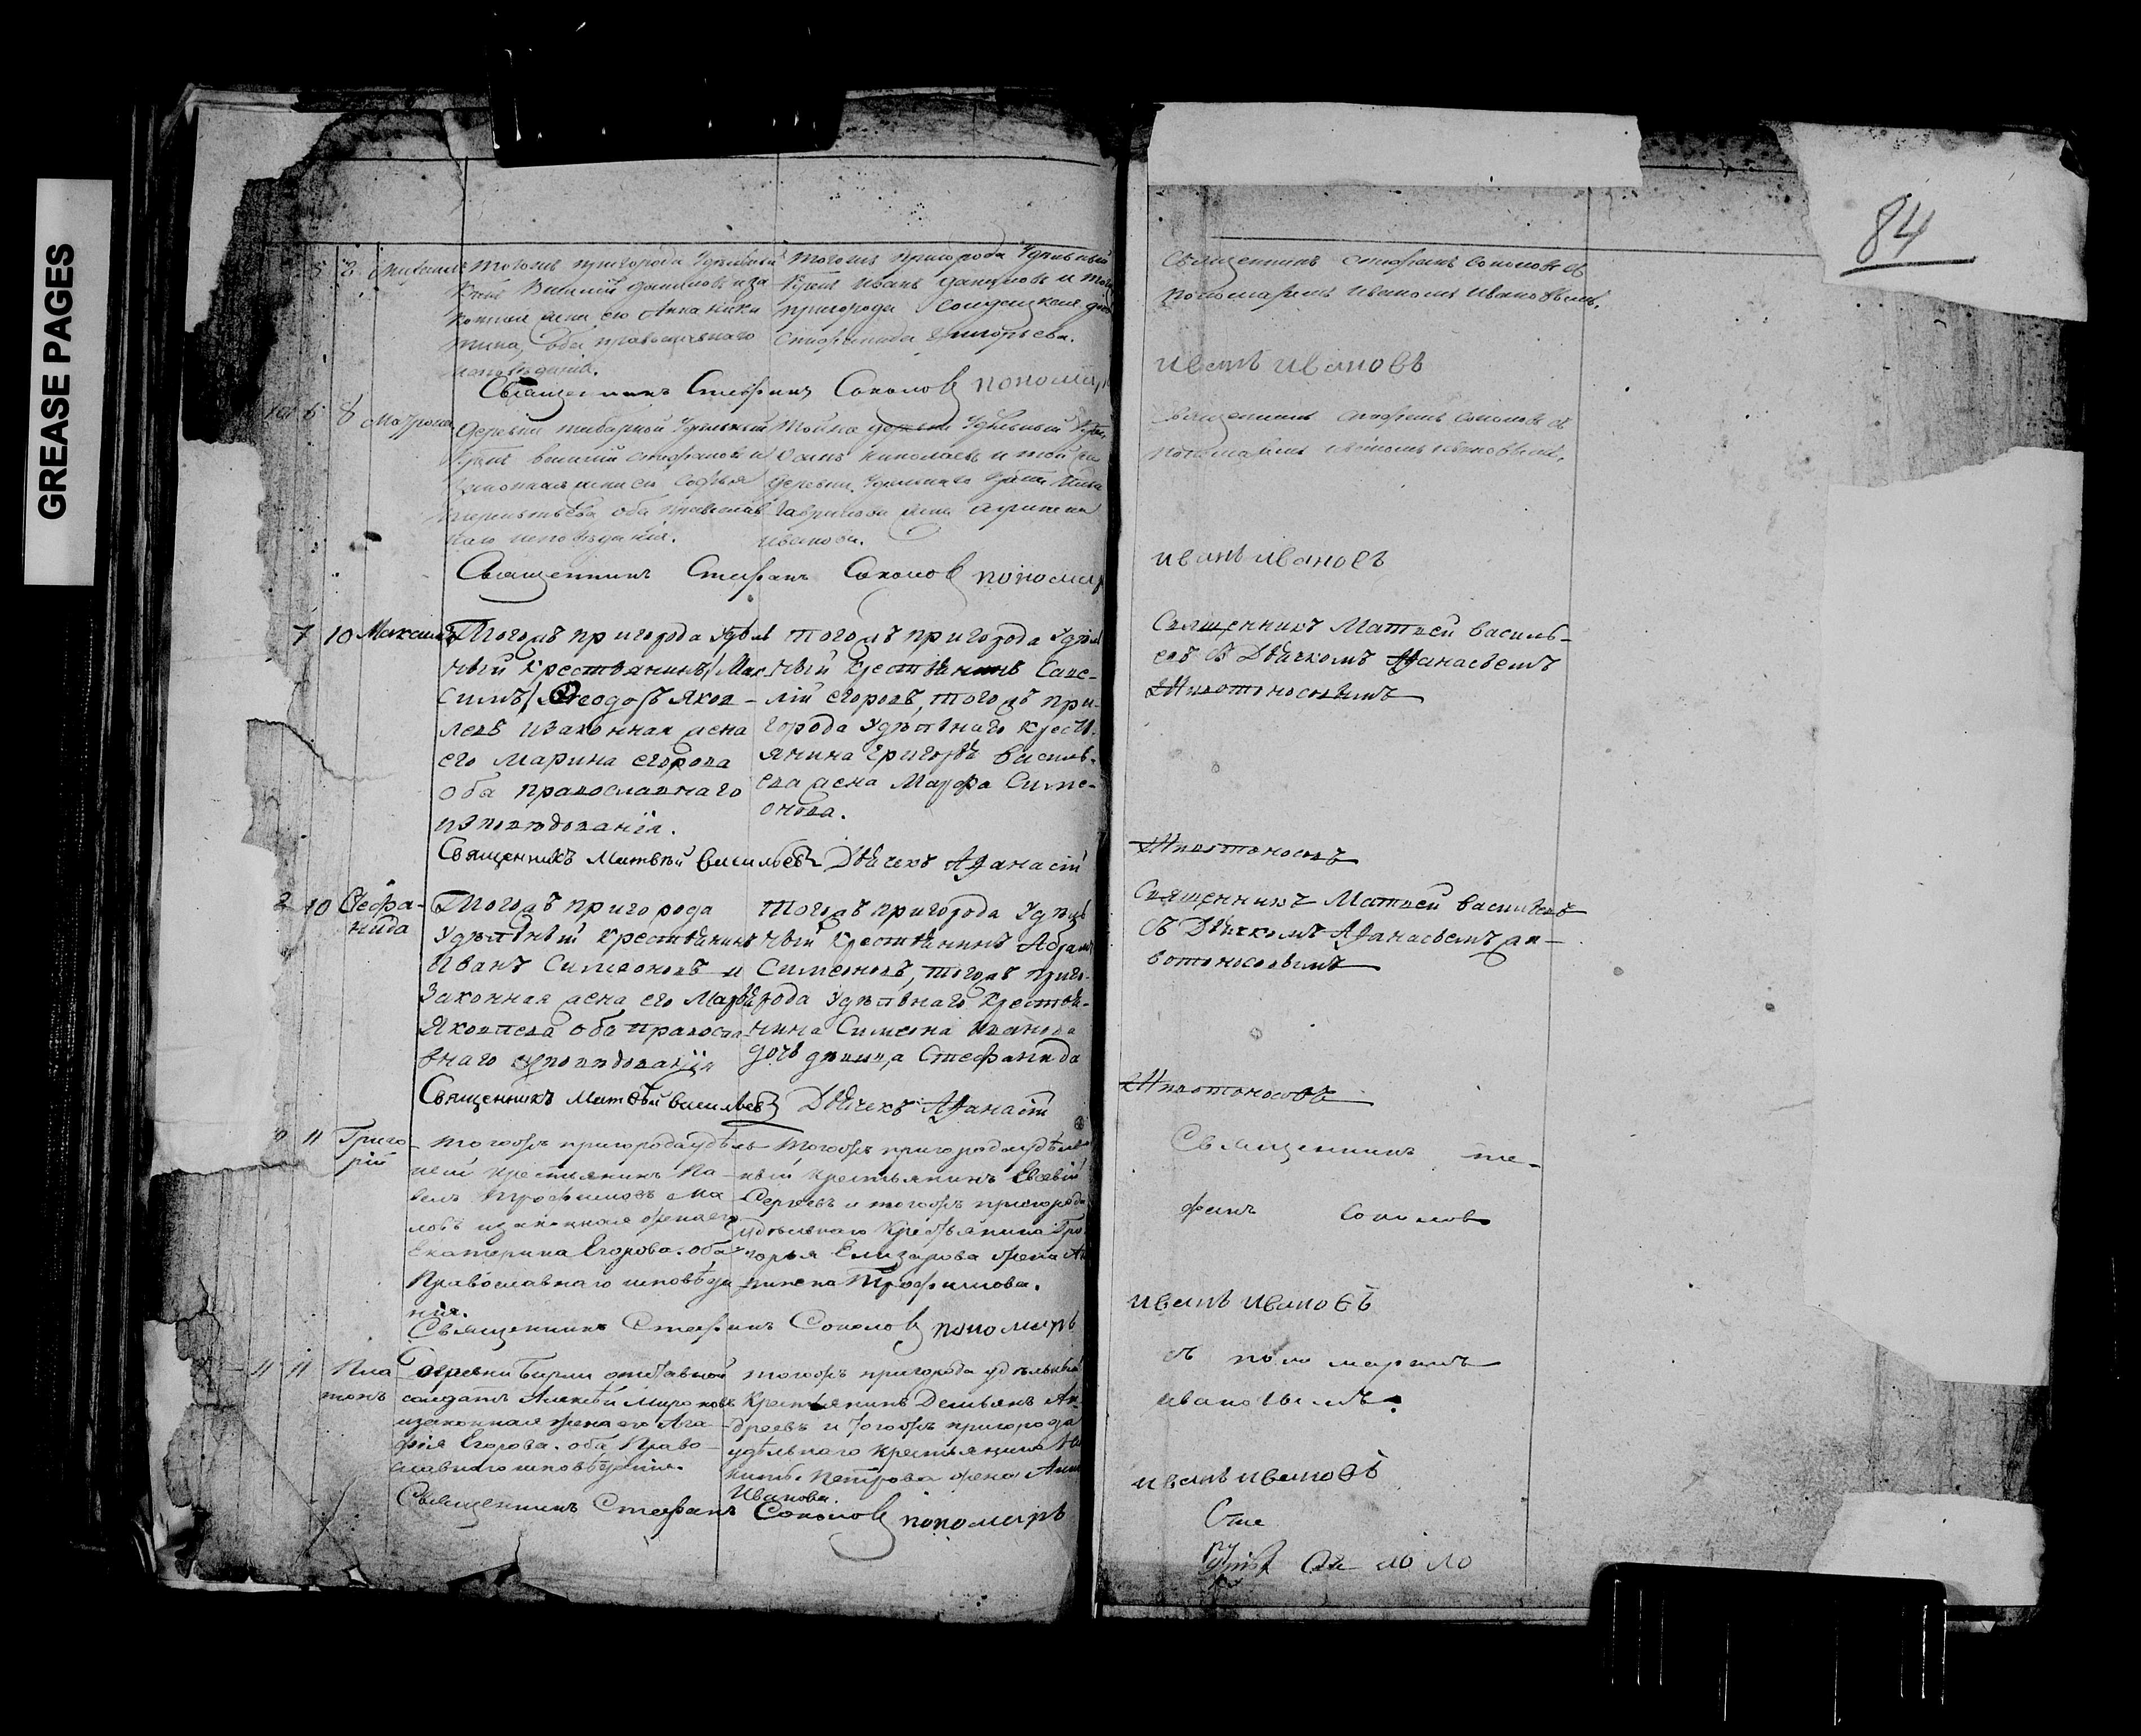 GREASE PAGES
84
5 2 Михаилъ
Тогожъ пригорода Удельный
Крест. Василий Даниловъ и за
конная жена его Анна Ники
тина, оба православнаго
исповѣданія.
Тогожъ пригорода Удельный
Крест. Иванъ Даниловъ и того
пригорода Солдатская дочь
Стефанида Григорьева.
Священникъ Стефанъ Соколовъ съ
пономаремъ Иваномъ Ивановымъ.
Священникъ Стефанъ Соколовъ пономарь
иванъ ивановъ
6 8 Матрона
Деревни Удельный
Крест. Василий Стефановъ и
законная жена его Софья
Терентьева оба православ
наго исповѣданія.
Тойже деревни Удельный Крест.
Николаевъ и той же
деревни Удельнаго Крест.
Гаврилова жена Агрипена
Иванова.
Священникъ Стефанъ Соколовъ съ
пономаремъ Иваномъ Ивановымъ.
Священникъ Стефанъ Соколовъ пономарь
иванъ ивановъ
7 10 Максимъ
Тогожъ пригорода Удѣль
ный крестьянинъ /Мак
симъ/ Ѳеодоръ Яков-
левъ и законная жена
его Марина Егорова
оба православнаго
исповѣдованія.
тогожъ пригорода Удѣль
ный крестьянинъ Саве-
лій Егоровъ, тогожъ при-
города Удѣльнаго кресть-
янина Григорья Василь-
ева жена Марфа Симе-
онова.
Священникъ Матвей Василь-
евъ съ Дьячкомъ Афанасьемъ
Животоносовымъ
Священникъ Матвѣй Васильевъ Дьячекъ Афанасій
Животоносовъ
2 10 Стефа-
нида
Тогожъ пригорода
Удѣльный крестьянинъ
Иванъ Симеоновъ и
Законная жена его Марфа
Яковлева оба правосла-
внаго исповѣдованія
Тогожъ пригорода Удѣль
ный Крестьянинъ Абрамъ
Симеоновъ, тогожъ приго-
рода Удѣльнаго Крестья-
нина Симеона Иванова
дочь девица Стефанида
Священникъ Матвей Васильевъ
съ Дьячкомъ Афанасьемъ жи-
вотоносовымъ
Священникъ Матвѣй Васильевъ Дьячекъ Афанасій
Животоносовъ
11 Григо-
рій
Тогожъ пригорода удѣль-
ный крестьянинъ Па-
велъ Трофимовъ Ма
ловъ и законная жена его
Екатерина Егорова. оба
Православнаго исповѣда
нія.
Тогожъ пригорода удѣль
ный крестьянинъ Евсевій
Сергеевъ и тогожъ пригорода
удѣльнаго Крестьянина Гри
горья Елизарова жена А
Трофимова.
Священникъ Сте-
фанъ Соколовъ
Священникъ Стефанъ Соколовъ пономарь
иванъ ивановъ
11 11 Пла
тонъ
Деревни отставной
солдатъ Алексѣй Мироновъ
и законная жена его Ага
фія Егорова. оба Право-
славнаго исповѣданія.
тогожъ пригорода удѣльный
Крестьянинъ Демьянъ Ан-
дреевъ и тогожъ пригорода
удѣльнаго крестьянина Ни
киты Петрова жена Анна
Иванова.
съ пономаремъ
ивановымъ.
Священникъ Стефанъ Соколовъ пономарь
иванъ ивановъ
Сте